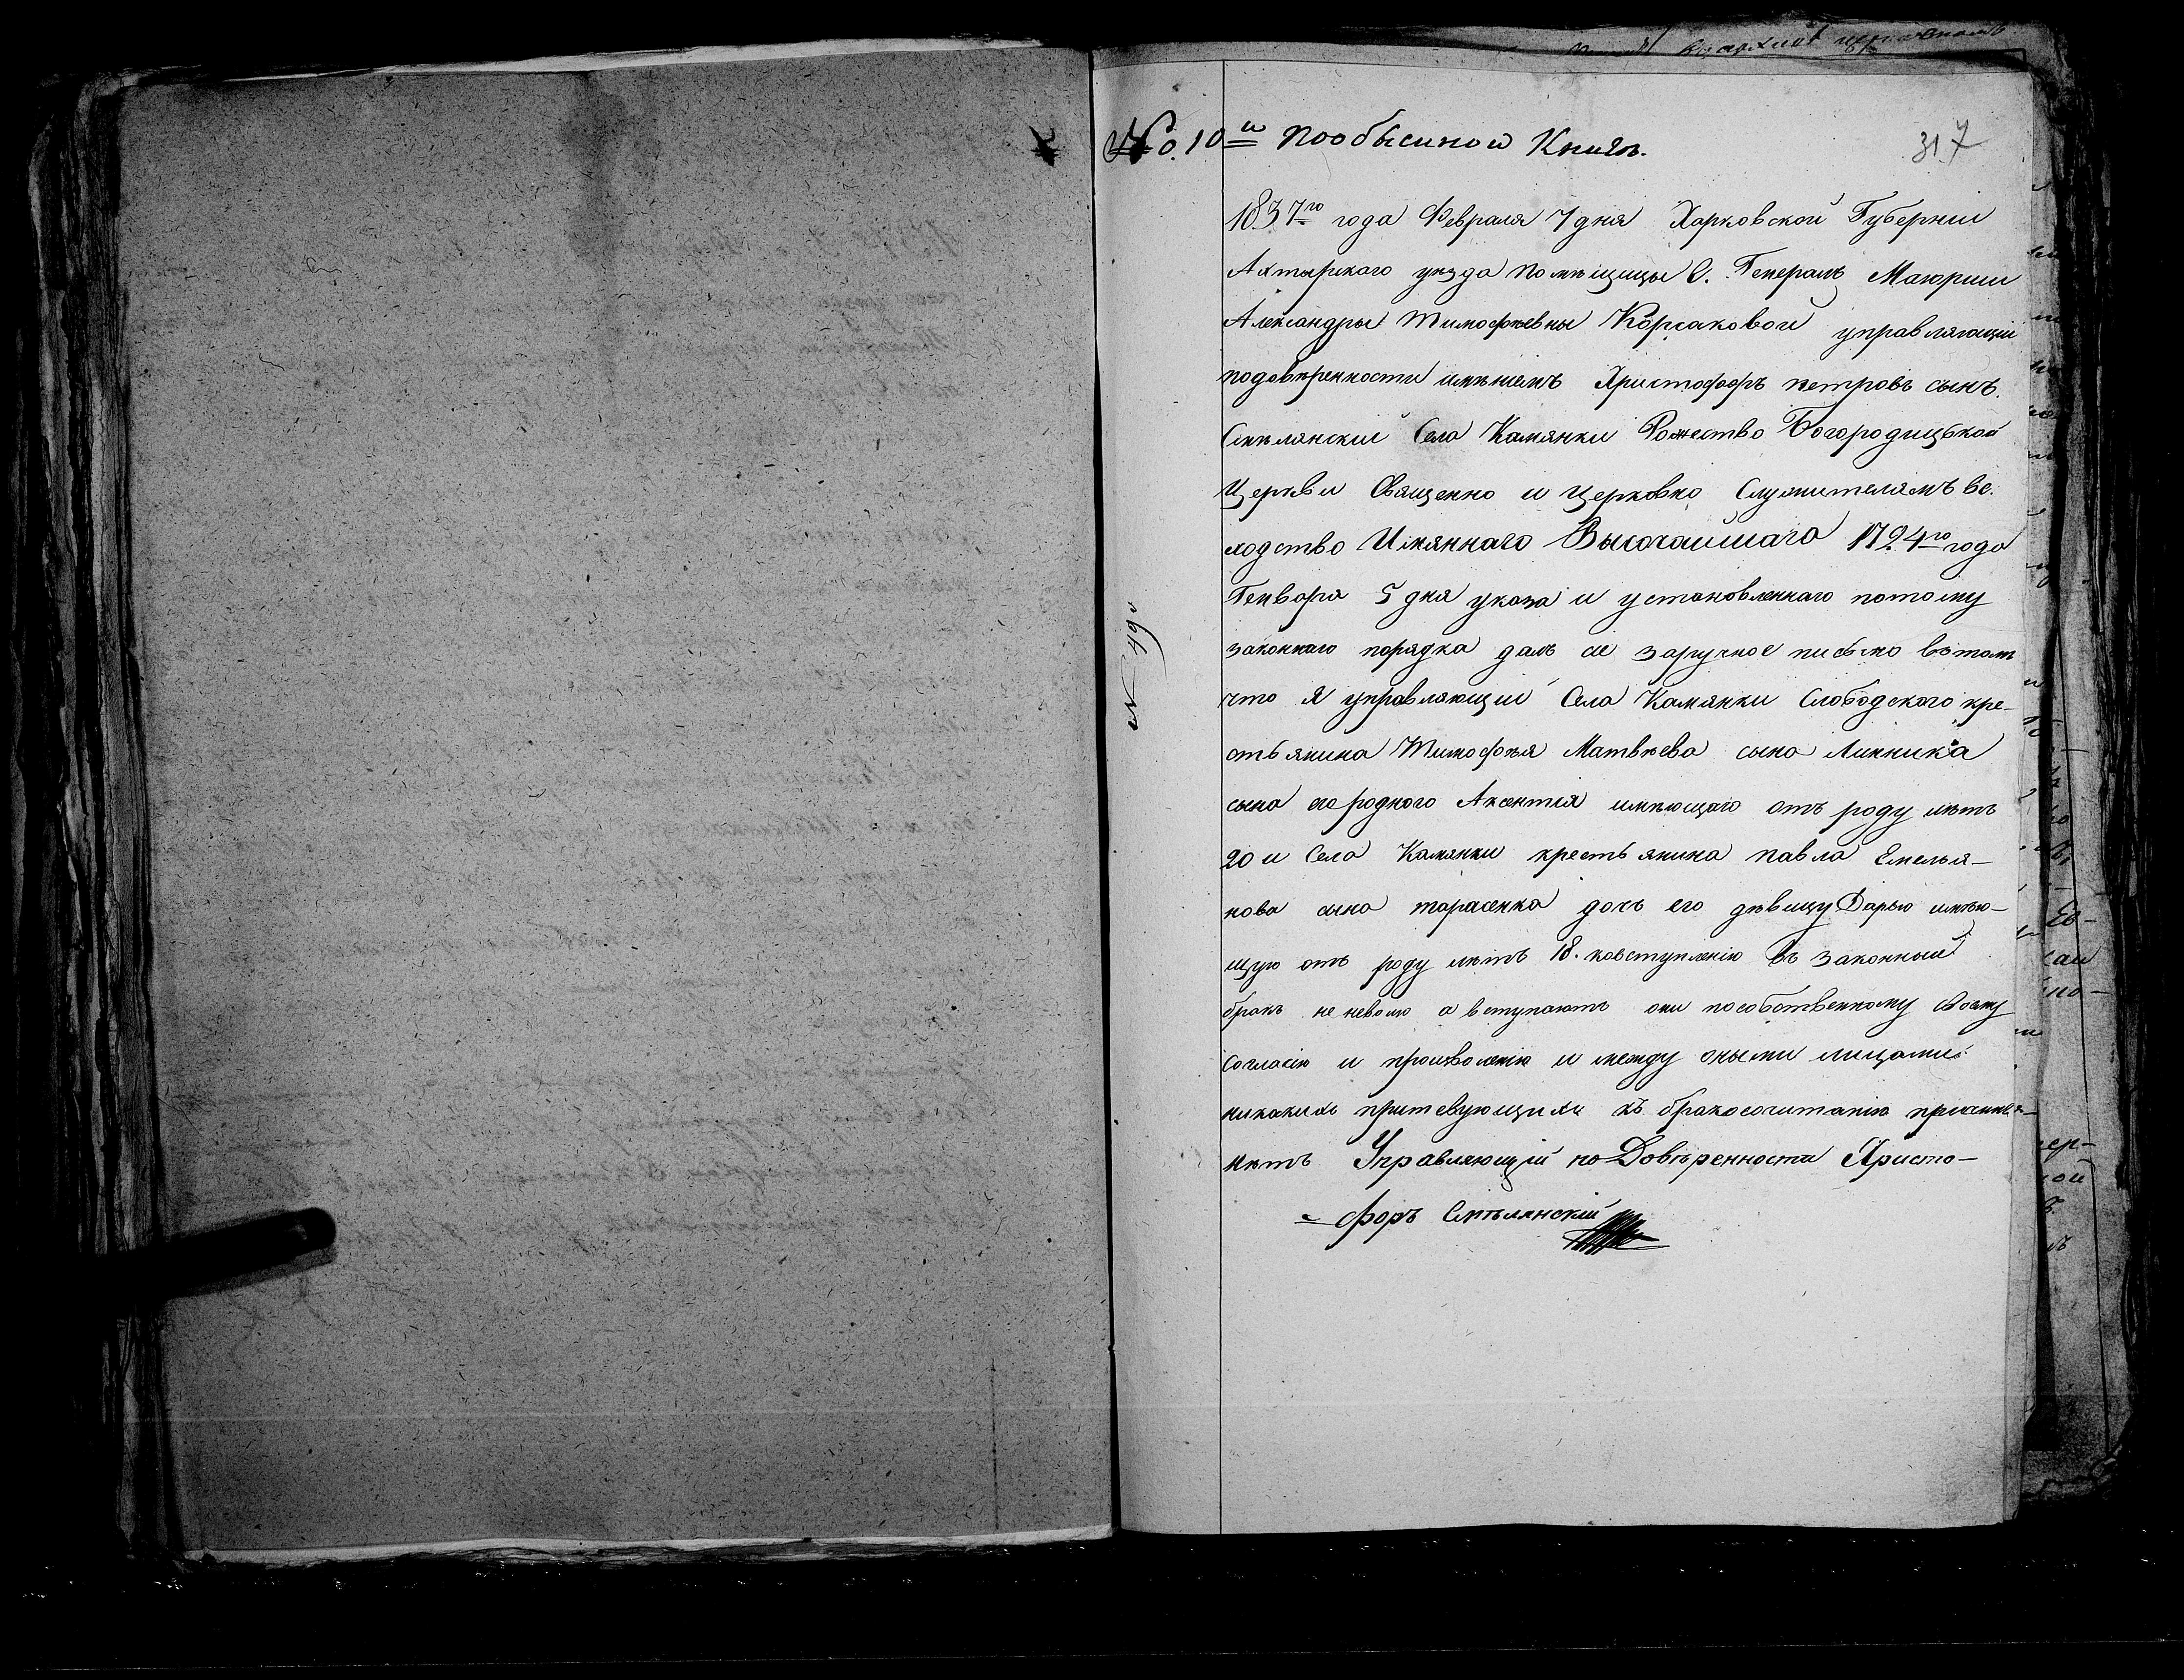 No. 10й пообысиной Книгѣ.
317
1837го года Февраля 7 дня Харковской Губерніи
Ахтырского уѣзда помѣщицы Г. Генералъ Маюрши
Александры Тимофѣевны Корсаковой управляющій
подовѣренности имѣніемъ Христофоръ петровъ сынъ.
Смѣлянскій Села Камянки Рожество Богородицской
Церкви Священно и церковно Служителямъ вс.
ходство Имяннаго Высочайшаго 1724го года
Генваря 5 дня указа и установленнаго потому
законнаго порядка далъ сіе заручное письмо втомъ
что я управляющій Села Камянки Слободского кре-
стьянина Тимофѣя Матвѣева сына Линника
сына егородного Аксентія имѣющаго отъ роду лѣтъ
20 и Села Камянки крестьянина павла Емелья-
нова сына тарасенка дочь его дѣвицу Дарью имѣю-
щую отъ роду лѣтъ 18. ковступленію въ законный
бракъ не неволю а вступаютъ они пособственному своему
согласію и произволенію и между оными лицами
никакихъ притевующихъ къ бракосочитанію
нѣтъ Управляющій по Довѣренности Христо-
форъ Смѣлянскій
№ 490